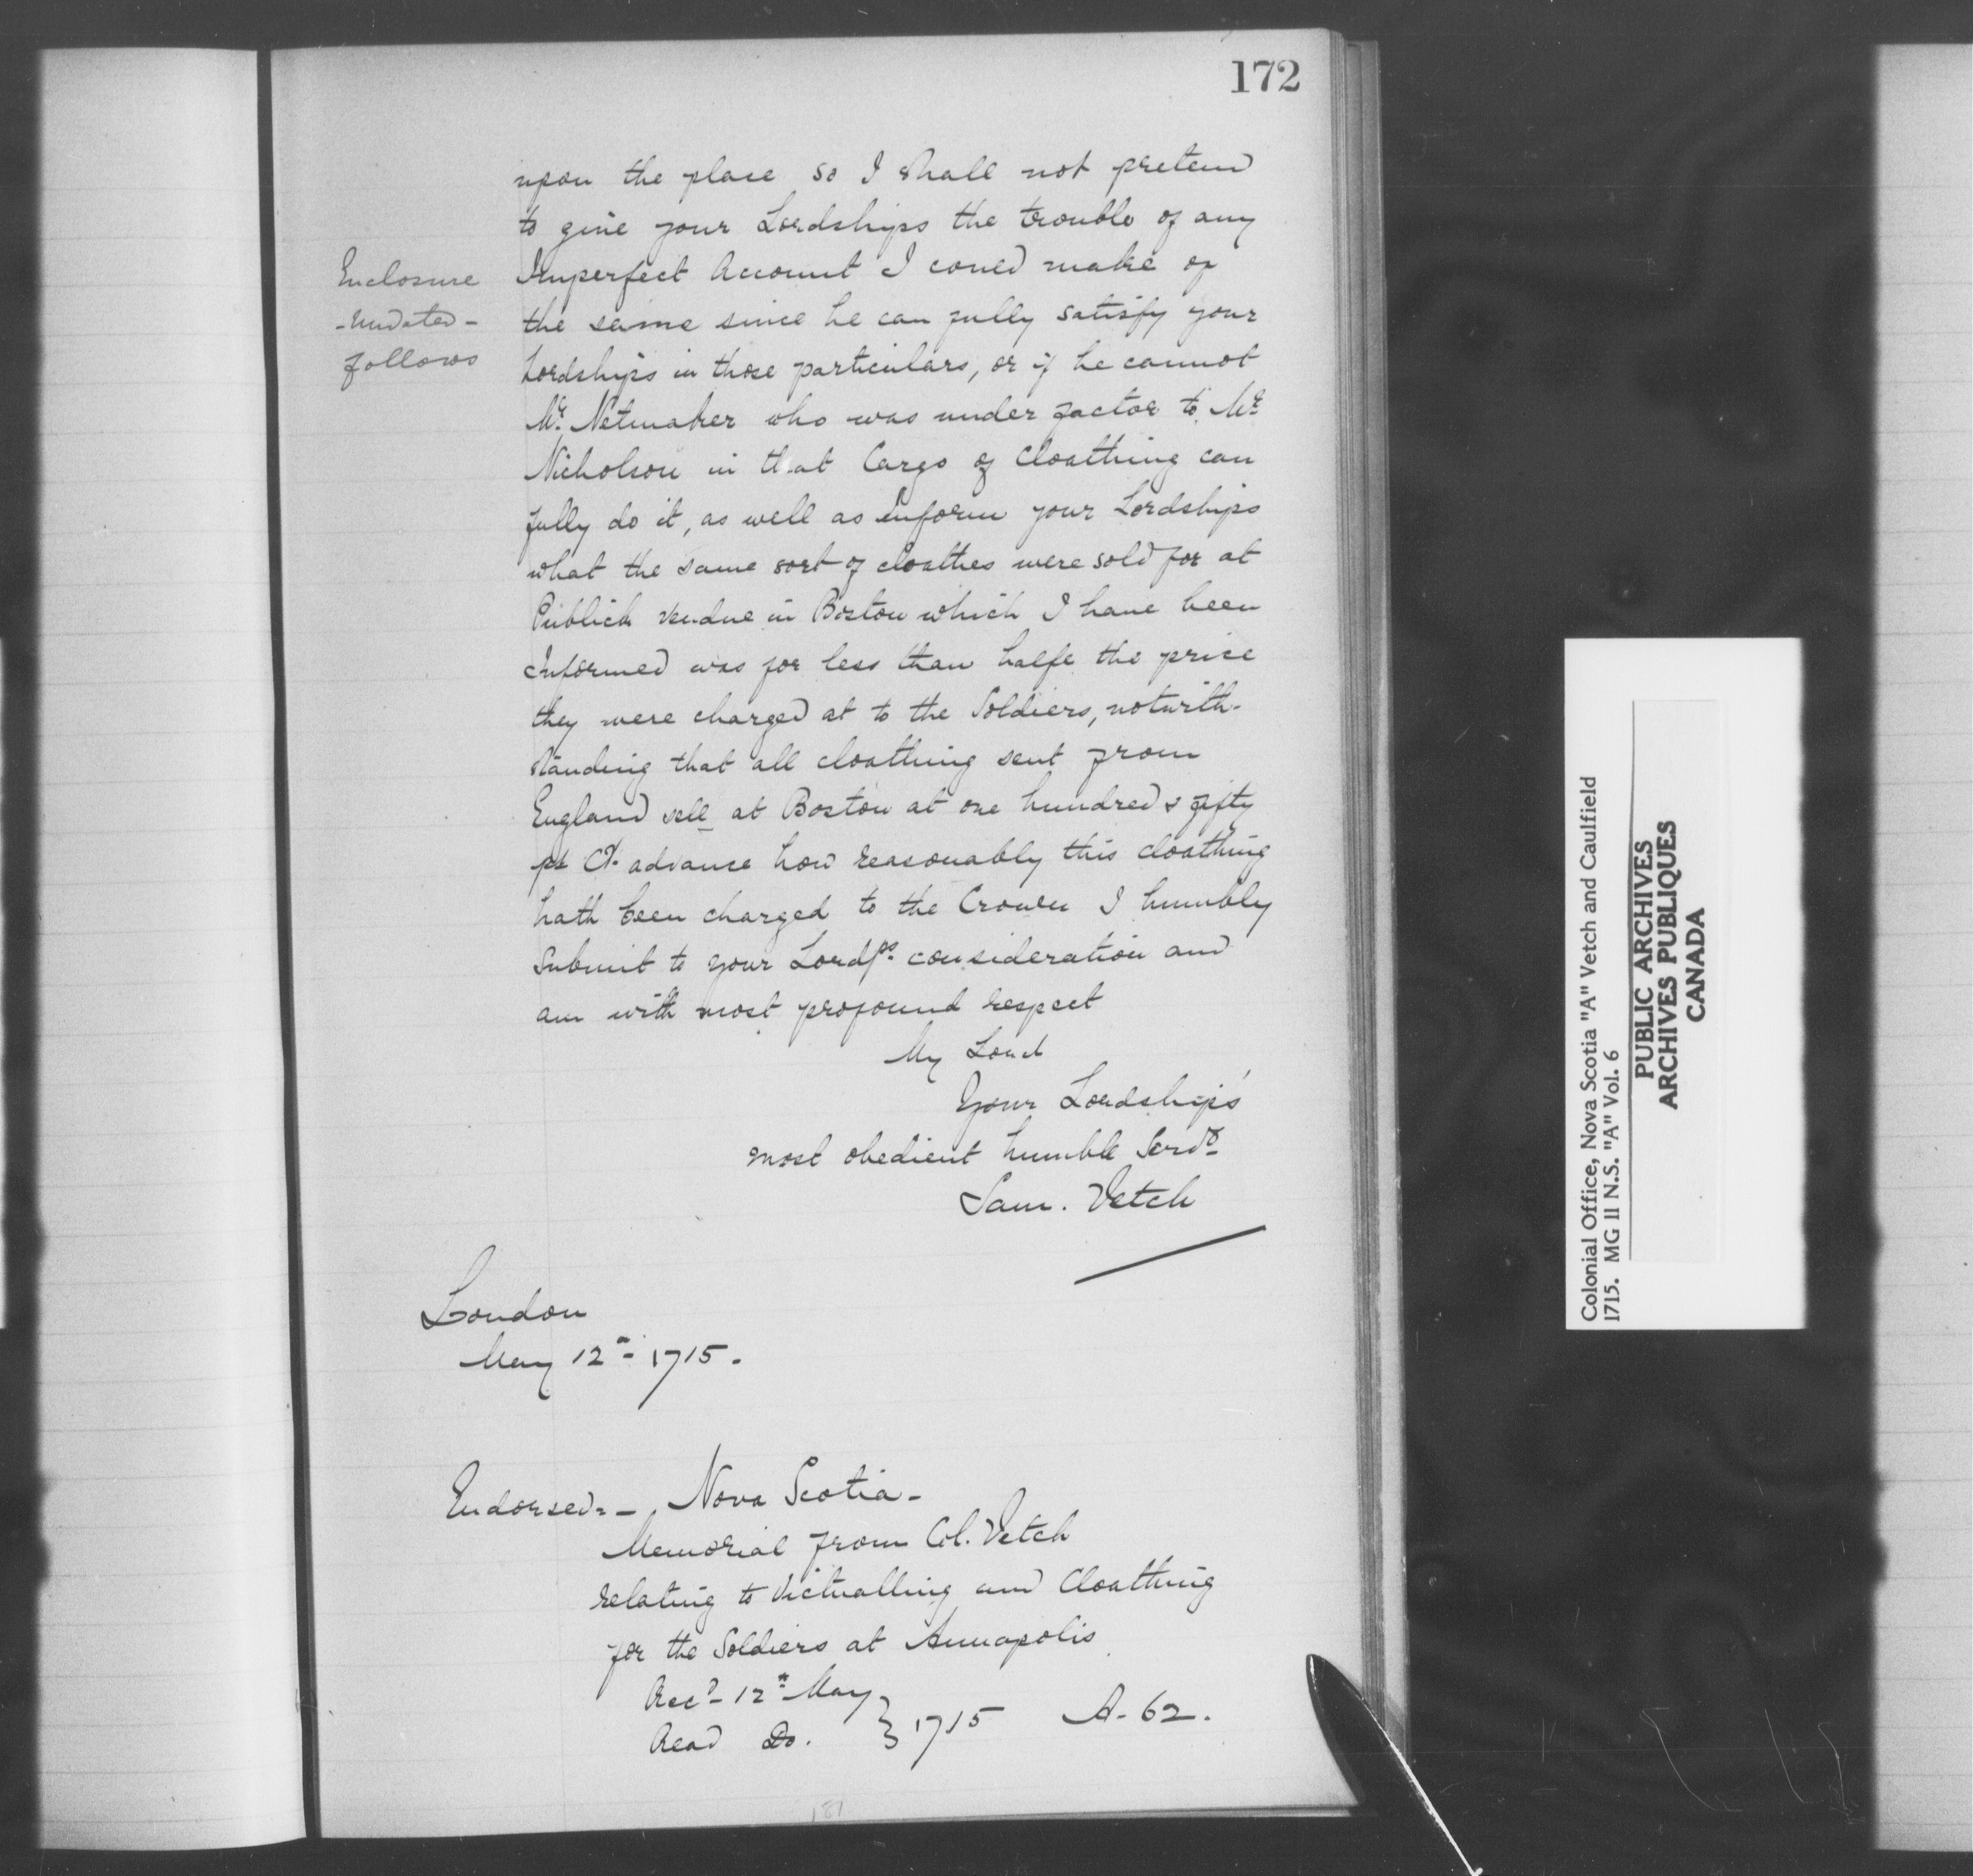 172
upon the place so I shall not pretend
to give your Lordships the trouble of any
Imperfect Account I coued make of
the same since he can fully satisfy your
Lordships in those particulars, or if he cannot
Mr. Netmaker who was under factor to Mr.
Nicholson in that Cargo of Cloathing can
fully do it, as well as inform your Lordships
what the same sort of cloathes were sold for at
Publick vendue in Boston which I have been
Informed was for less than halfe the price
they were charged at to the Soldiers, notwith-
standing that all cloathing sent from
England sell at Boston at one hundred & fifty
pr Ct. advance how reasonably this cloathing
hath been charged to the Crown I humbly
Submit to your Lordps. consideration and
am with most profound respect
My Lord
Your Lordships'
most obedient humble Servt.
Sam. Vetch
Enclosure
- undated -
follows
London
May 12th 1715.
Endorsed:- Nova Scotia-
Memorial from Col. Vetch
relating to Victualling and Cloathing
for the Soldiers at Annapolis
Recd. 12th May
Read Do. } 1715 A-62.
181
Colonial Office, Nova Scotia "A" Vetch and Caulfield
1715. MG 11 N.S. "A" Vol. 6
PUBLIC ARCHIVES
ARCHIVES PUBLIQUES
CANADA